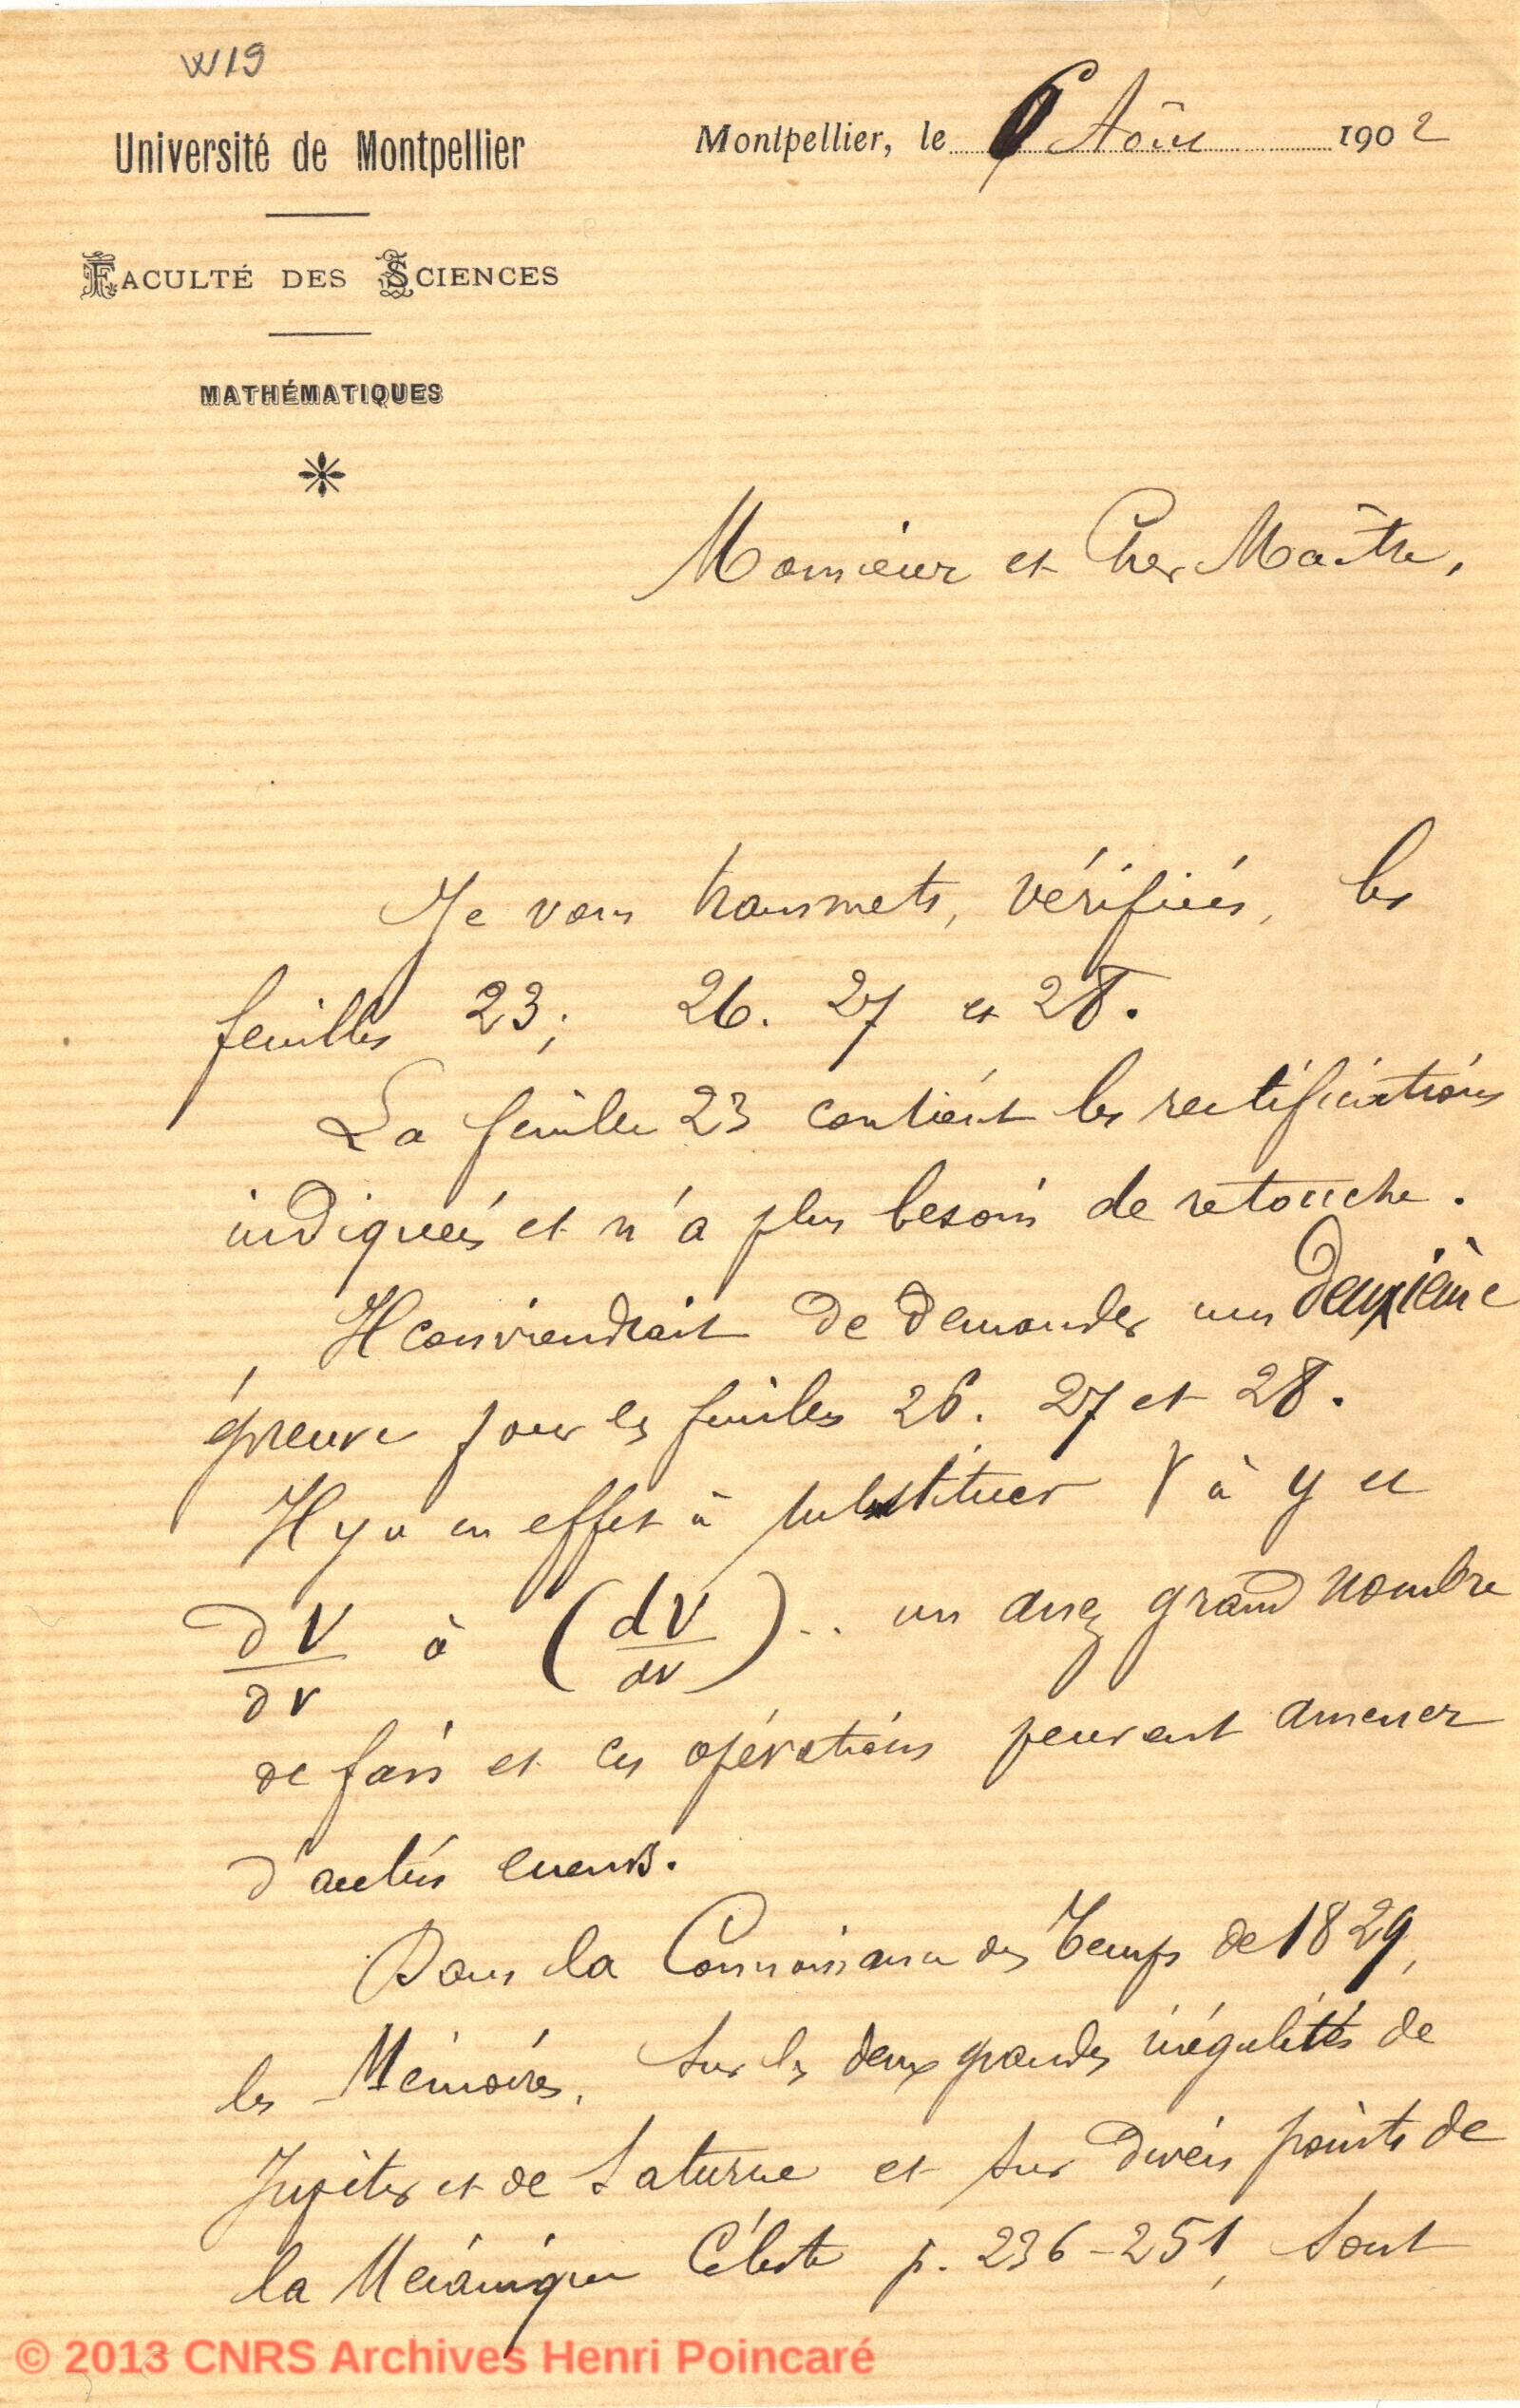 W19
Université de Montpellier
Montpellier, le 6 Août 1902
FACULTÉ DES SCIENCES
MATHÉMATIQUES
Monsieur et Cher Maître,
Je vous transmets, vérifiées, les
feuilles 23; 26. 27 et 28.
La feuille 23 contient les rectifications
indiquées et n'a plus besoin de retouche.
Il conviendrait de demander une deuxième
épreuve pour les feuilles 26. 27 et 28.
Il y a en effet à substituer r à y et
∂V/∂r à (dV/dr)... un assez grand nombre
de fois et ces opérations peuvent amener
d'autres erreurs.
Dans la Connaissance des Temps de 1829,
les Mémoires. Sur les deux grandes inégalités de
Jupiter et de Saturne et sur divers points de
la Mécanique Céleste p. 236-251, sont
© 2013 CNRS Archives Henri Poincaré